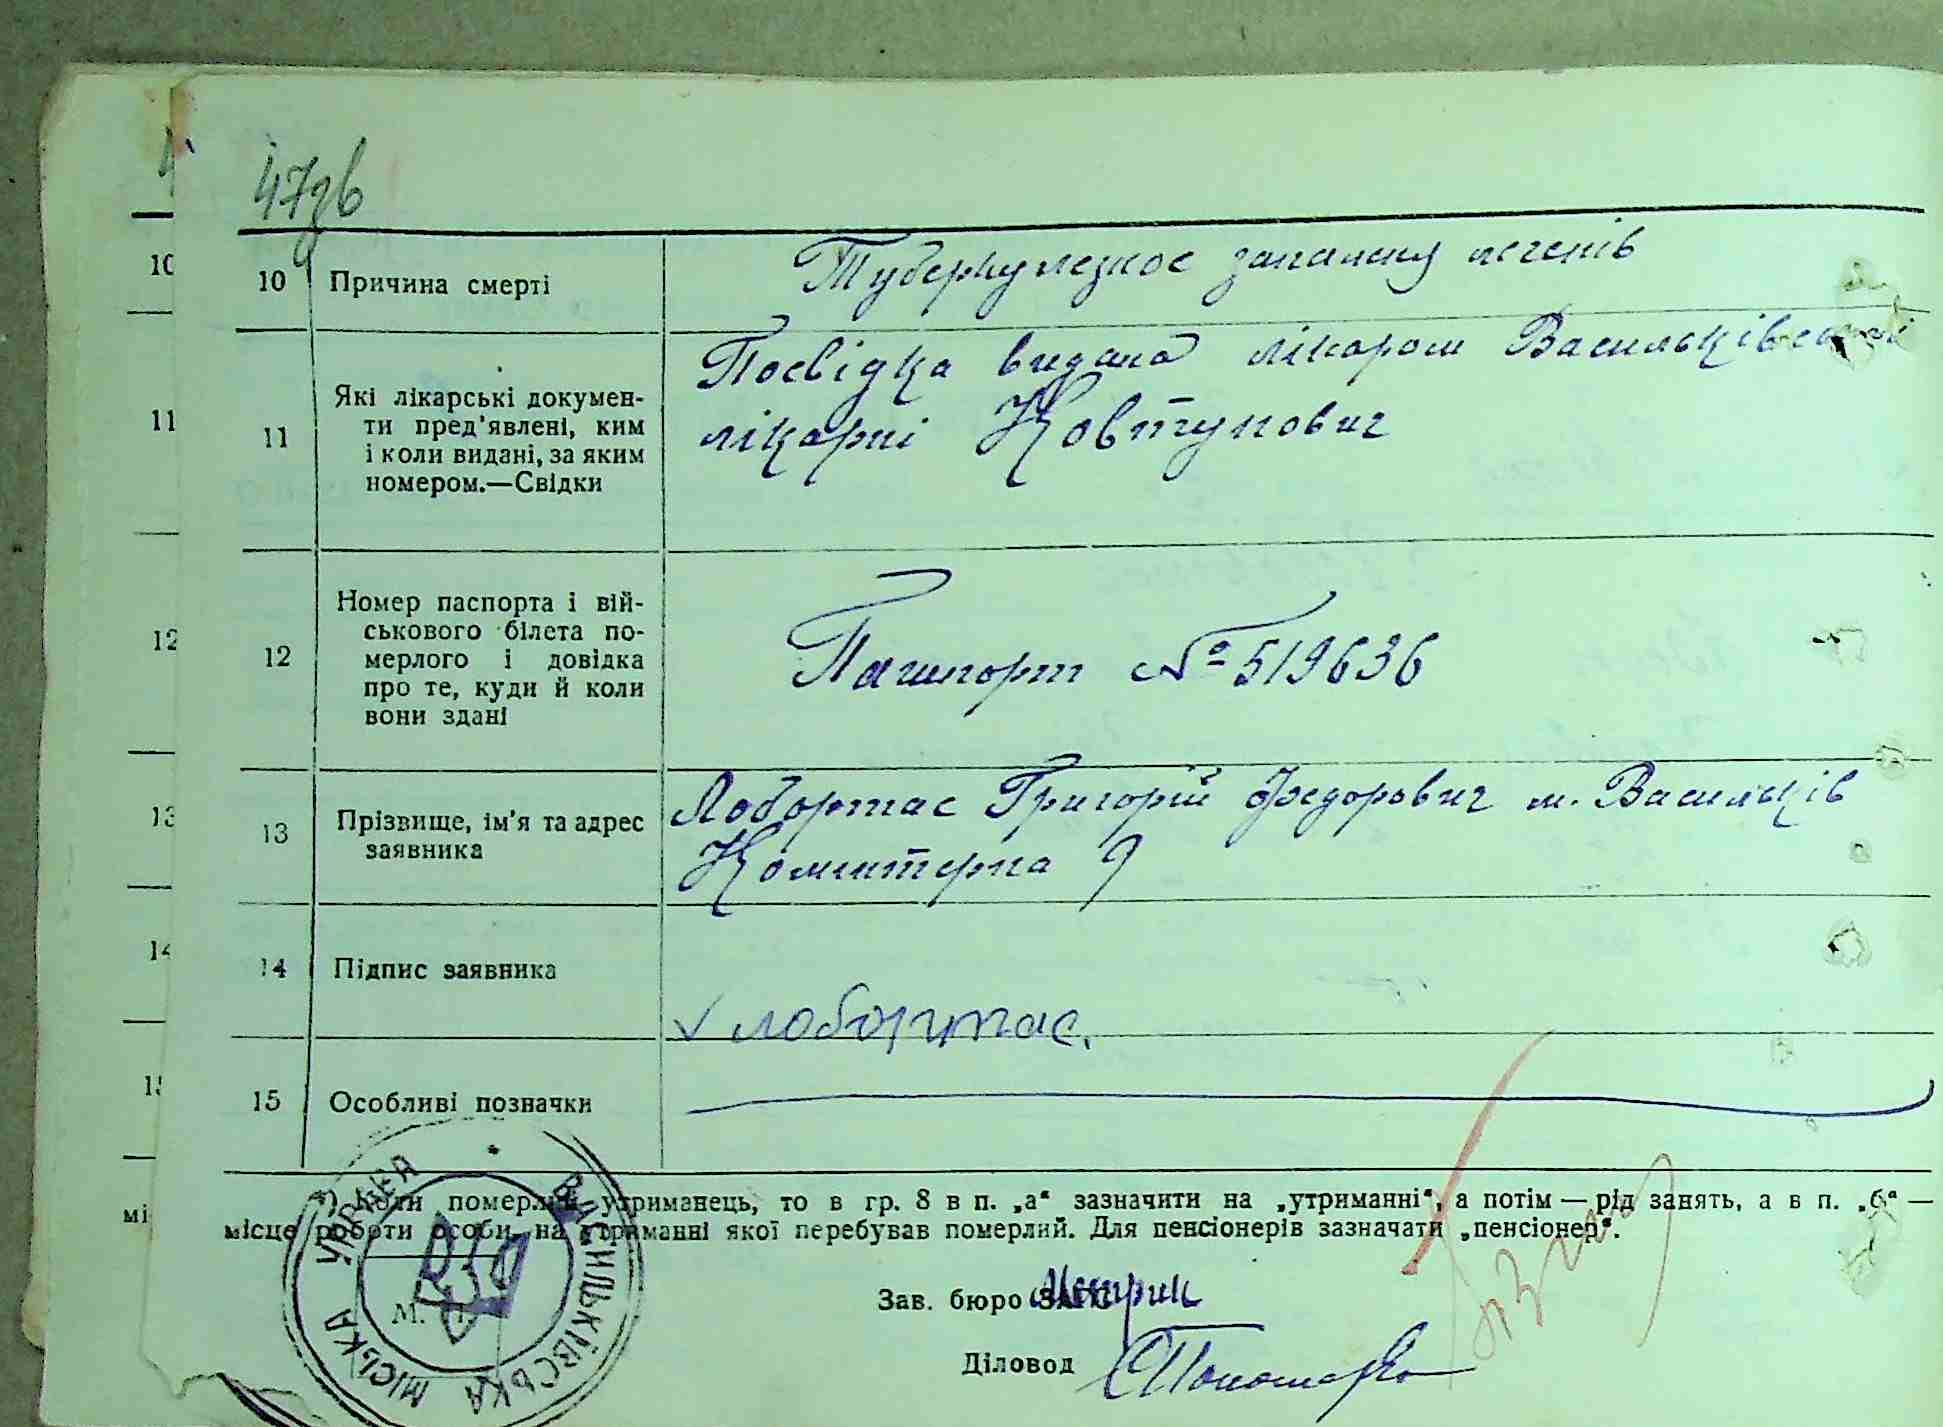 47зв
10 Причина смерті Туберкулезное запалення легенів
11 Які лікарські докумен-
ти пред'явлені, ким
і коли видані, за яким
номером.—Свідки
Посвідка видана лікаром Васильківської
лікарні Ковтунович
12 Номер паспорта і вій-
ськового білета по-
мерлого і довідка
про те, куди й коли
вони здані
Пашпорт № 519636
13 Прізвище, ім'я та адрес
заявника
Лобортас Григорій Федорович м. Васильків
Комінтерна 9
14 Підпис заявника
лобортас.
15 Особливі позначки
*) Коли померлий утриманець, то в гр. 8 в п. „а“ зазначити на „утриманні“, а потім — рід занять, а в п. „б“ —
місце роботи особи, на утриманні якої перебував померлий. Для пенсіонерів зазначати „пенсіонер“.
М. П.
ВАСИЛЬКІВСЬКА МІСЬКА УПРАВА
Зав. бюро ЗАГС
Діловод
10
11
12
13
14